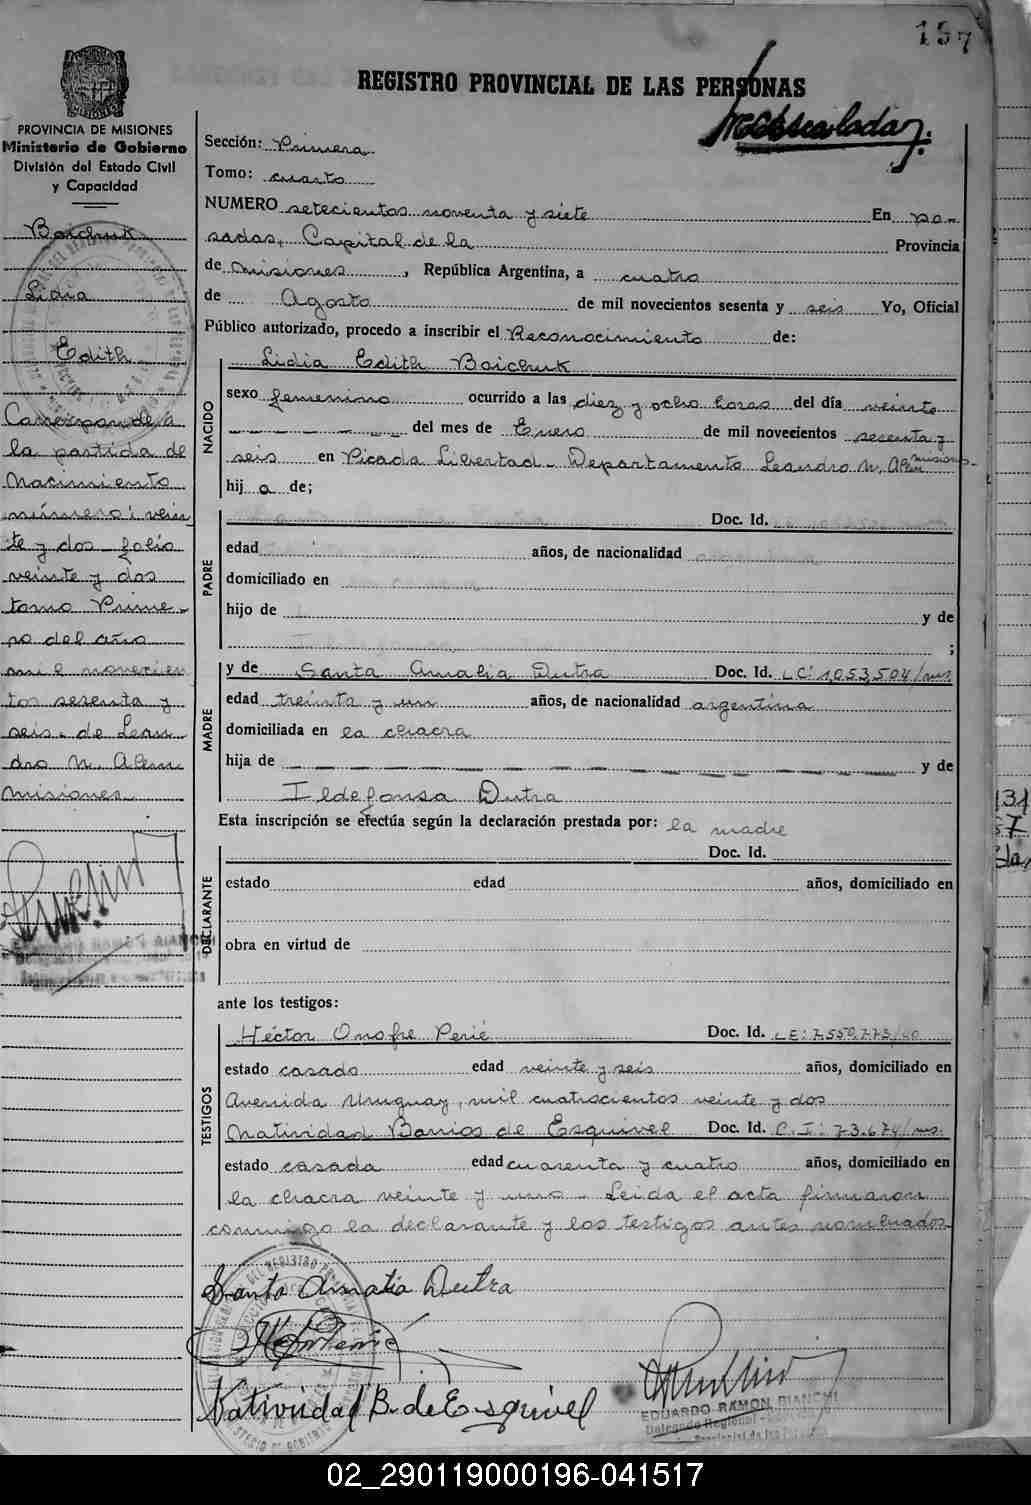 157
REGISTRO PROVINCIAL DE LAS PERSONAS
PROVINCIA DE MISIONES
Ministerio de Gobierno
División del Estado Civil
y Capacidad
Boichuk
Lidia
Edith
Corresponde a
la partida de
Nacimiento
número: vein
te y dos folio
veinte y dos
tomo Prime-
ro del año
mil novecien
tos sesenta y
seis - de Lean
dro N. Alem
Misiones
Sección: Primera
Tomo: cuarto
NUMERO setecientos noventa y siete En Po-
sadas, Capital de la Provincia
de Misiones, República Argentina, a cuatro
de Agosto de mil novecientos sesenta y seis Yo, Oficial
Público autorizado, procedo a inscribir el Reconocimiento de:
Lidia Edith Boichuk
NACIDO
sexo femenino ocurrido a las diez y ocho horas del día veinte
del mes de Enero de mil novecientos sesenta y
seis en Picada Libertad - Departamento Leandro N. Alem Misiones-
hij a de;
PADRE
Doc. Id.
edad años, de nacionalidad
domiciliado en
hijo de y de
;
MADRE
y de Santa Amalia Dutra Doc. Id. LC: 1,053,504/ms
edad treinta y un años, de nacionalidad argentina
domiciliada en la chacra
hija de y de
Ildefonsa Dutra
Esta inscripción se efectúa según la declaración prestada por: la madre
DECLARANTE
Doc. Id.
estado edad años, domiciliado en
obra en virtud de
ante los testigos:
TESTIGOS
Héctor Onofre Perié Doc. Id. LE: 7.550.773/40
estado casado edad veinte y seis años, domiciliado en
Avenida Uruguay, mil cuatrocientos veinte y dos
Natividad Barrios de Esquivel Doc. Id. C.I: 73.674/ms.
estado casada edad cuarenta y cuatro años, domiciliado en
la chacra veinte y uno - Leida el acta firmaron
conmigo la declarante y los testigos antes nombrados-
Santa Amalia Dutra
Natividad B. de Esquivel
EDUARDO RAMON BIANCHI
Delegado Regional
Provincial de las Personas
02_290119000196-041517